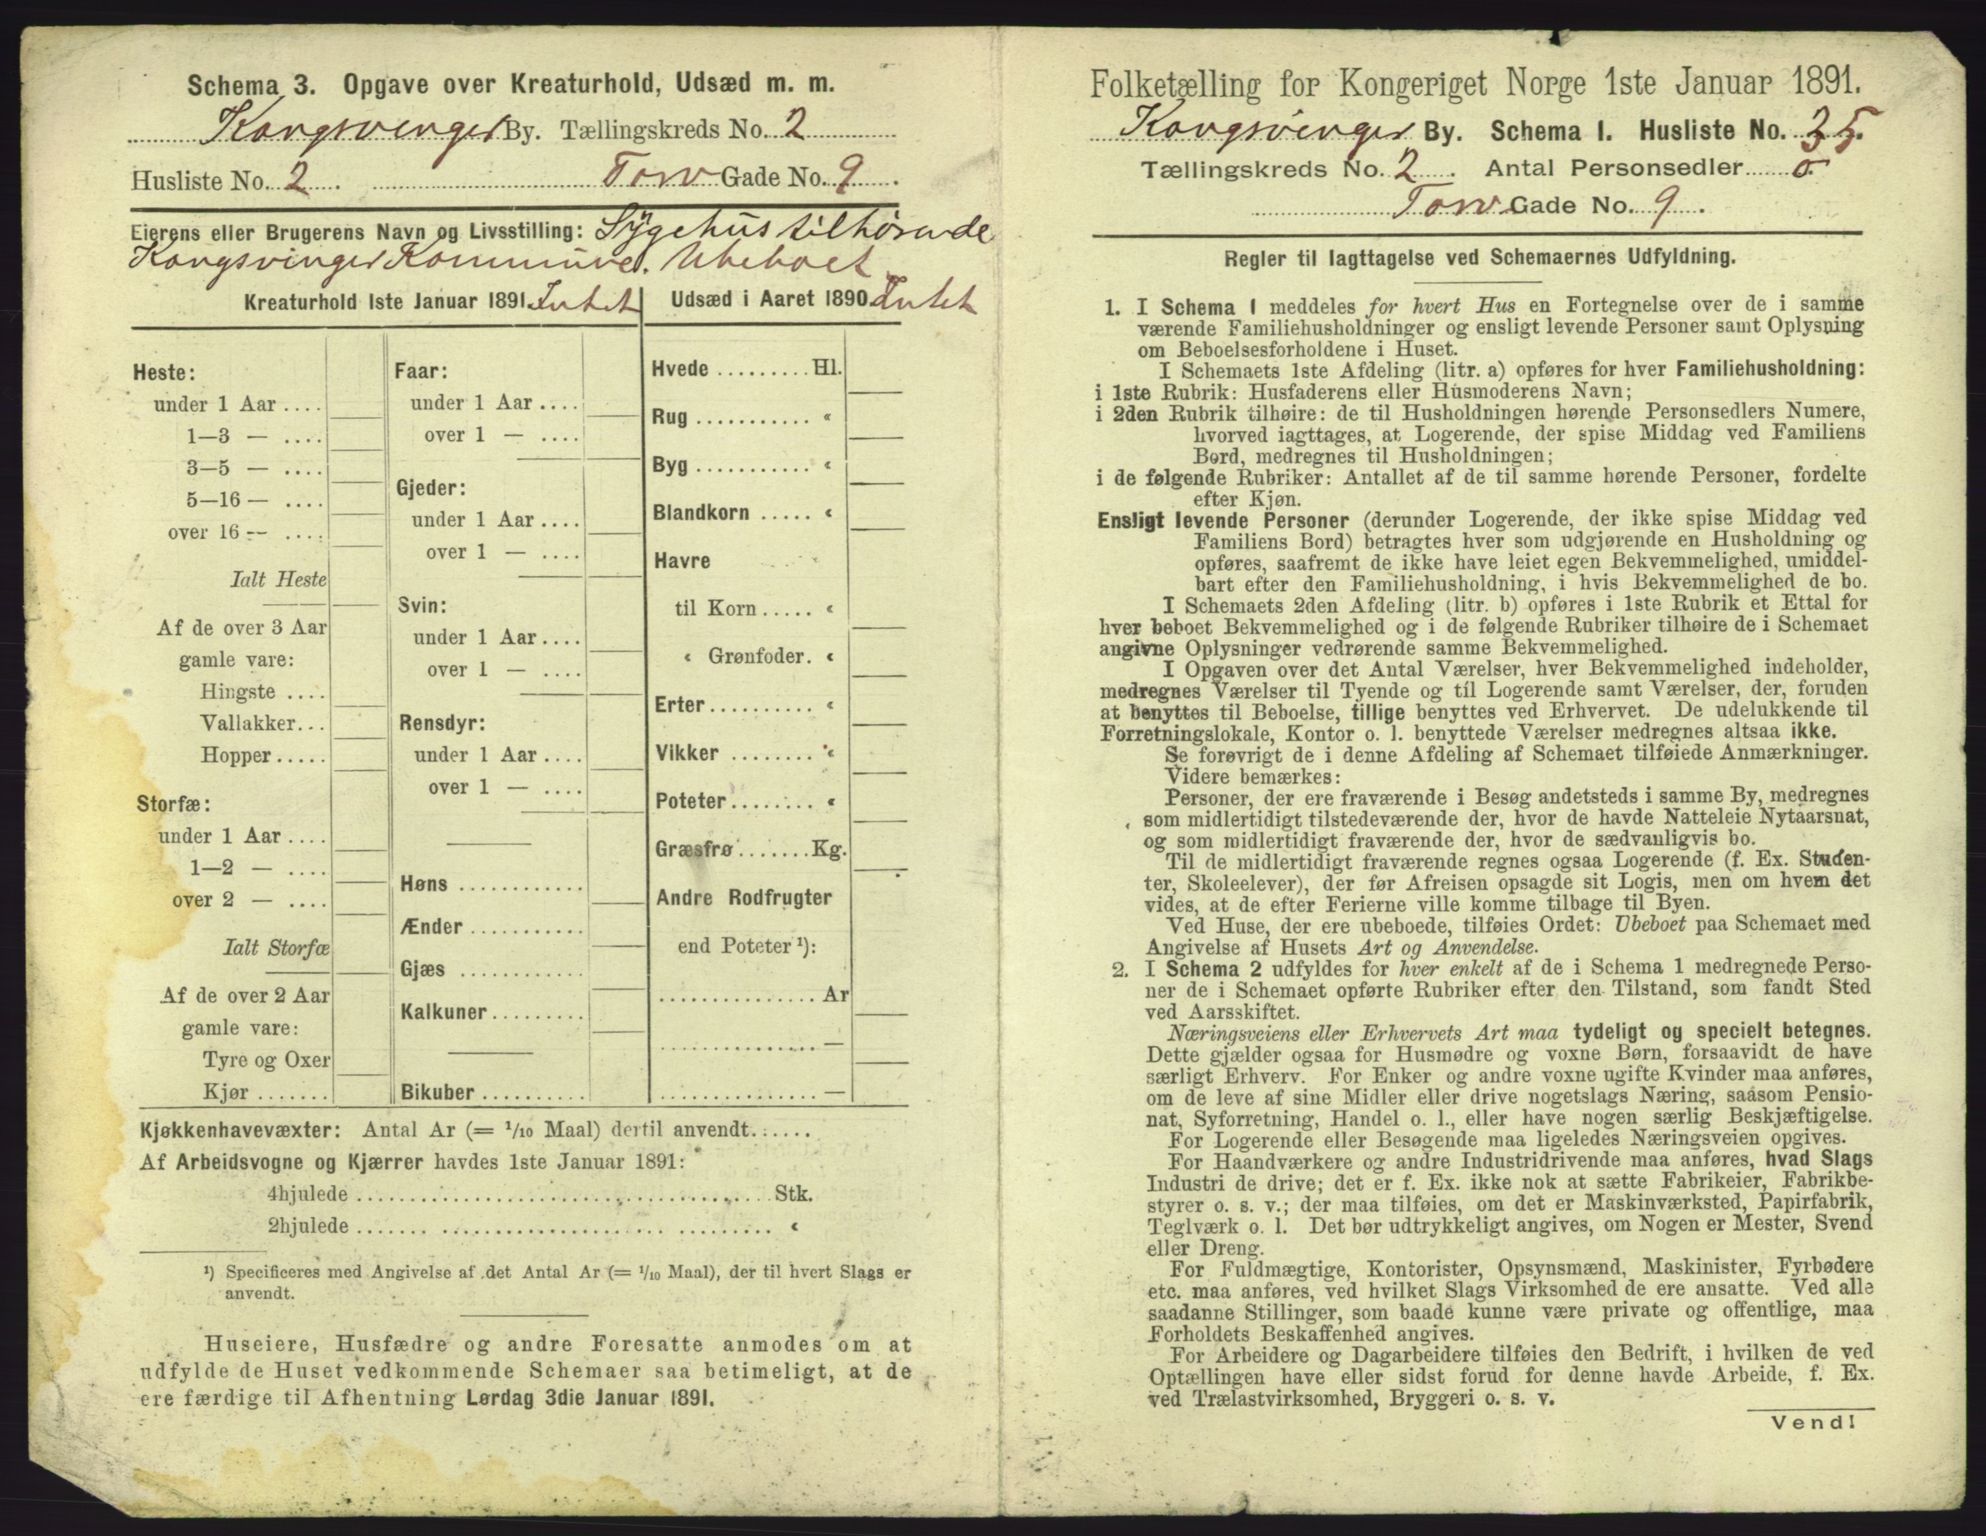 Schema 3. Opgave over Kreaturhold, Udsæd m. m.
Kongsvinger By. Tællingskreds No. 2
Husliste No. 2. Torv Gade No. 9.
Eierens eller Brugerens Navn og Livsstilling: Sygehus tilhørende
Kongsvinger Kommune. Ubeboet
Kreaturhold 1ste Januar 1891. Intet
Heste:
under 1 Aar ....
1—3 — ....
3—5 — ....
5—16 — ....
over 16 — ....
Ialt Heste
Af de over 3 Aar
gamle vare:
Hingste ....
Vallakker...
Hopper .....
Storfæ:
under 1 Aar ....
1—2 — ....
over 2 — ....
Ialt Storfæ
Af de over 2 Aar
gamle vare:
Tyre og Oxer
Kjør .......
Faar:
under 1 Aar ....
over 1 — ....
Gjeder:
under 1 Aar ....
over 1 — ....
Svin:
under 1 Aar ....
over 1 — ....
Rensdyr:
under 1 Aar ....
over 1 — ....
Høns ...........
Ænder ...........
Gjæs ...........
Kalkuner.........
Bikuber ..........
Udsæd i Aaret 1890. Intet
Hvede ......... Hl.
Rug ........... «
Byg ........... «
Blandkorn ..... «
Havre
til Korn ..... «
« Grønfoder. «
Erter.......... «
Vikker ........ «
Poteter........ «
Græsfrø....... Kg.
Andre Rodfrugter
end Poteter ¹):
............... Ar
............... —
............... —
Kjøkkenhavevæxter: Antal Ar (= ¹/₁₀ Maal) dertil anvendt.......
Af Arbeidsvogne og Kjærrer havdes 1ste Januar 1891:
4hjulede ........................................ Stk.
2hjulede ........................................ «
¹) Specificeres med Angivelse af det Antal Ar (= ¹/₁₀ Maal), der til hvert Slags er
anvendt.
Huseiere, Husfædre og andre Foresatte anmodes om at
udfylde de Huset vedkommende Schemaer saa betimeligt, at de
ere færdige til Afhentning Lørdag 3die Januar 1891.
Folketælling for Kongeriget Norge 1ste Januar 1891.
Kongsvinger By. Schema 1. Husliste No. 35.
Tællingskreds No. 2. Antal Personsedler 0.
Torv Gade No. 9.
Regler til Iagttagelse ved Schemaernes Udfyldning.
1. I Schema 1 meddeles for hvert Hus en Fortegnelse over de i samme
værende Familiehusholdninger og ensligt levende Personer samt Oplysning
om Beboelsesforholdene i Huset.
I Schemaets 1ste Afdeling (litr. a) opføres for hver Familiehusholdning:
i 1ste Rubrik: Husfaderens eller Husmoderens Navn;
i 2den Rubrik tilhøire: de til Husholdningen hørende Personsedlers Numere,
hvorved iagttages, at Logerende, der spise Middag ved Familiens
Bord, medregnes til Husholdningen;
i de følgende Rubriker: Antallet af de til samme hørende Personer, fordelte
efter Kjøn.
Ensligt levende Personer (derunder Logerende, der ikke spise Middag ved
Familiens Bord) betragtes hver som udgjørende en Husholdning og
opføres, saafremt de ikke have leiet egen Bekvemmelighed, umiddel-
bart efter den Familiehusholdning, i hvis Bekvemmelighed de bo.
I Schemaets 2den Afdeling (litr. b) opføres i 1ste Rubrik et Ettal for
hver beboet Bekvemmelighed og i de følgende Rubriker tilhøire de i Schemaet
angivne Oplysninger vedrørende samme Bekvemmelighed.
I Opgaven over det Antal Værelser, hver Bekvemmelighed indeholder,
medregnes Værelser til Tyende og til Logerende samt Værelser, der, foruden
at benyttes til Beboelse, tillige benyttes ved Erhvervet. De udelukkende til
Forretningslokale, Kontor o. l. benyttede Værelser medregnes altsaa ikke.
Se forøvrigt de i denne Afdeling af Schemaet tilføiede Anmærkninger.
Videre bemærkes:
Personer, der ere fraværende i Besøg andetsteds i samme By, medregnes
som midlertidigt tilstedeværende der, hvor de havde Natteleie Nytaarsnat,
og som midlertidigt fraværende der, hvor de sædvanligvis bo.
Til de midlertidigt fraværende regnes ogsaa Logerende (f. Ex. Studen-
ter, Skoleelever), der før Afreisen opsagde sit Logis, men om hvem det
vides, at de efter Ferierne ville komme tilbage til Byen.
Ved Huse, der ere ubeboede, tilføies Ordet: Ubeboet paa Schemaet med
Angivelse af Husets Art og Anvendelse.
2. I Schema 2 udfyldes for hver enkelt af de i Schema 1 medregnede Perso-
ner de i Schemaet opførte Rubriker efter den Tilstand, som fandt Sted
ved Aarsskiftet.
Næringsveiens eller Erhvervets Art maa tydeligt og specielt betegnes.
Dette gjælder ogsaa for Husmødre og voxne Børn, forsaavidt de have
særligt Erhverv. For Enker og andre voxne ugifte Kvinder maa anføres,
om de leve af sine Midler eller drive nogetslags Næring, saasom Pensio-
nat, Syforretning, Handel o. l., eller have nogen særlig Beskjæftigelse.
For Logerende eller Besøgende maa ligeledes Næringsveien opgives.
For Haandværkere og andre Industridrivende maa anføres, hvad Slags
Industri de drive; det er f. Ex. ikke nok at sætte Fabrikeier, Fabrikbe-
styrer o. s. v.; der maa tilføies, om det er Maskinværksted, Papirfabrik,
Teglværk o. l. Det bør udtrykkeligt angives, om Nogen er Mester, Svend
eller Dreng.
For Fuldmægtige, Kontorister, Opsynsmænd, Maskinister, Fyrbødere
etc. maa anføres, ved hvilket Slags Virksomhed de ere ansatte. Ved alle
saadanne Stillinger, som baade kunne være private og offentlige, maa
Forholdets Beskaffenhed angives.
For Arbeidere og Dagarbeidere tilføies den Bedrift, i hvilken de ved
Optællingen have eller sidst forud for denne havde Arbeide, f. Ex.
ved Trælastvirksomhed, Bryggeri o. s. v.
Vend!